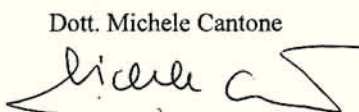 Dott. Michele Cantone
Michele C